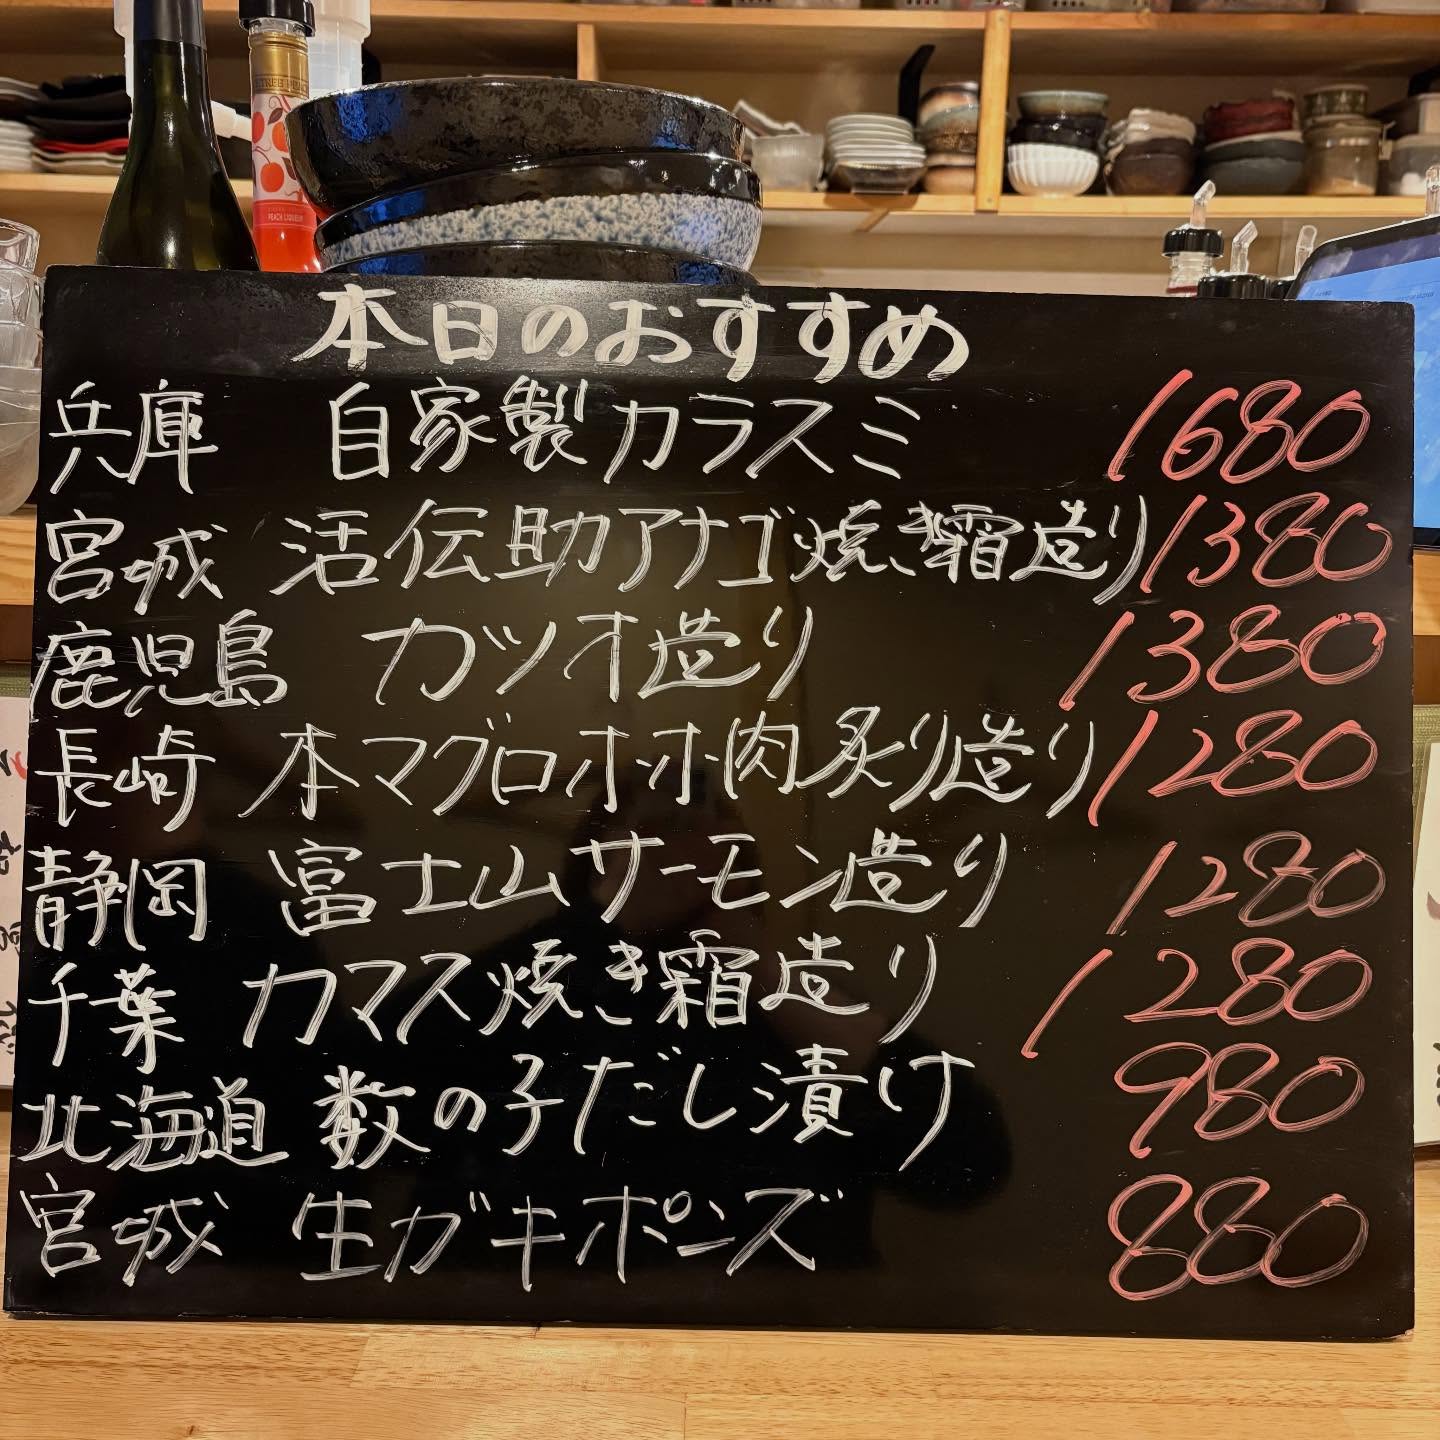 本日のおすすめ
兵庫 自家製カラスミ 1680
宮城 活伝助アナゴ焼き霜造り 1380
鹿児島 カツオ造り 1380
長崎 本マグロホホ肉炙り造り 1280
静岡 富士山サーモン造り 1280
千葉 カマス焼き霜造り 1280
北海道 数の子だし漬け 980
宮城 生ガキポンズ 880
PEACH LIQUEUR